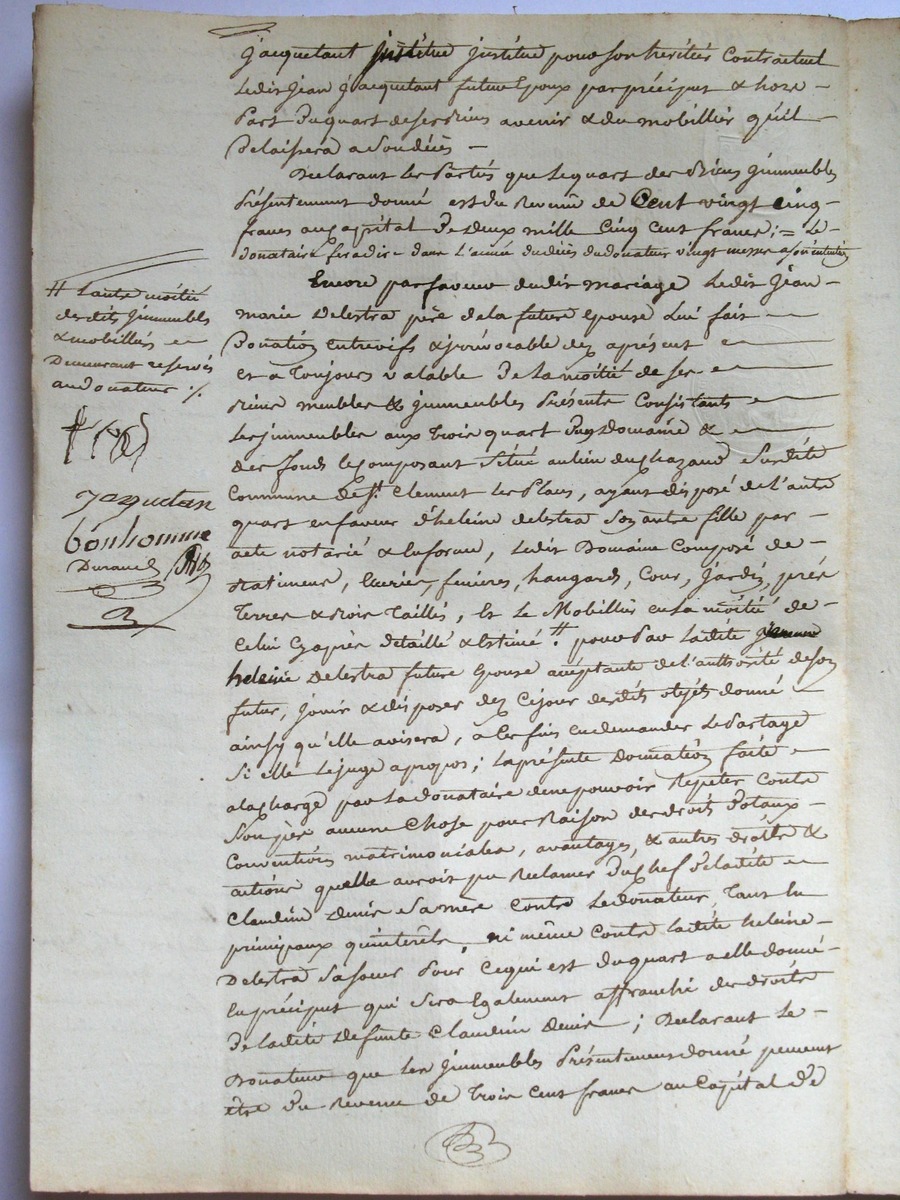 jacquetant institue institue pour son heritier Contractuel
Ledit Jean Jacquetant futur Epoux par préciput & hors
Part Du quart de ses Biens avenir & du mobillier qu'il
Delaissera a son décès
Declarant les Parties que le quart des Biens Jmmeubles
Présentement donné est du Revenu de Cent vingt cinq
francs au capital De deux mille Cinq Cent francs ; = Le
donataire fera dire dans l'année du décès du donateur vingt messes a son intention
Encore par faveur dudit mariage Ledit Jean
marie Delestra père de la future epouse Lui fait
Donation entrevifs & jrrévocable dez aprésent
et a Toujours valable De la moitié de ses
Biens meubles & jmmeubles Présents Consistants
Les jmmeubles aux trois quart D'un Domaine &
des fonds le Composant Situé au lieu du chazaud Susdite
Commune de St. Clement les Places, ayant disposé de l'autre
quart en faveur d'heleine delestra Son autre fille par
acte notarié & En forme, Ledit Domaine Composé de
Batiments, Ecuries, fenieres, hangards, Cour, Jardin, prés
Terres & Bois Taillés, Et Le Mobillier en La moitié de
Celui Cy après détaillé & Estimé # pour Par Ladite
heleine Delestra future Epouse acceptante de l'authorité de son
futur, jouir & disposer dez Cejour desdits objets donné
ainsy qu'elle avisera, a Ces fins en demander Le Partage
Si elle Le juge a propos ; La présente Donnation faite
a la charge par La donataire de ne pouvoir Repeter Contre
Son père aucune Chose pour Raison des droits Dotaux
Conventions matrimoniales, avantages, & autres droits &
actions quelle auroit pu Reclamer Du chef de ladite
Claudine Denis Sa mère Contre Le donateur, Tant En
principaux qu'intérêts, ni même Contre Ladite heleine
Delestra Sa soeur Pour Cequi est du quart a elle donné
En préciput qui Sera Egalement affranchi des droits
De ladite Defunte Claudine Denis ; Declarant Le
Donateur que Les jmmeubles Présentement donné peuvent
être Du Revenu de Trois Cent francs au Capital De
# L'autre moitié
desdits Jmmeubles
& mobilliés
Demeurant reservés
au donateur ·/.
Jaquetan
bonhomme
Durand